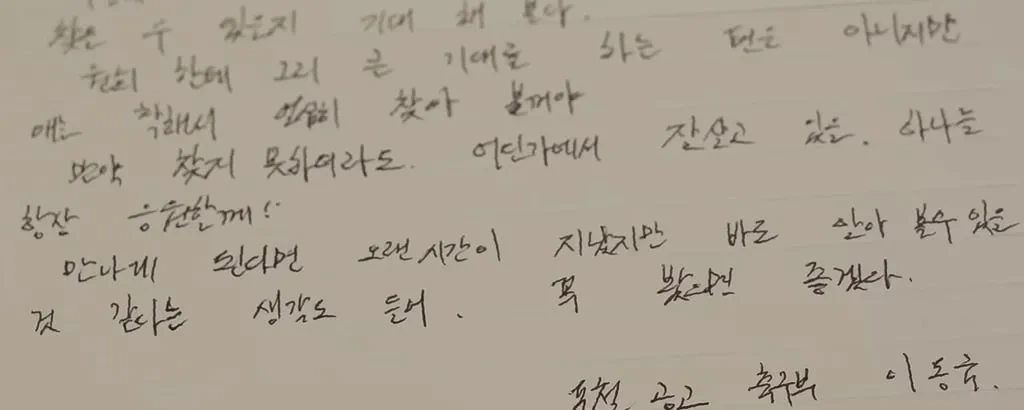 찾을 수 있을지 기대 해 본다.
한테 그리 큰 기대를 하는 편은 아니지만
애는 착해서 열심히 찾아 볼꺼야
만약 찾지 못하여라도. 어딘가에서 잘살고 있을. 하나를
항장 응원할께!
만나게 된다면 오랜시간이 지났지만 바로 알아 볼수있을
것 같다는 생각도 들어. 꼭 봤으면 좋겠다.
공고 축구부 이동국.